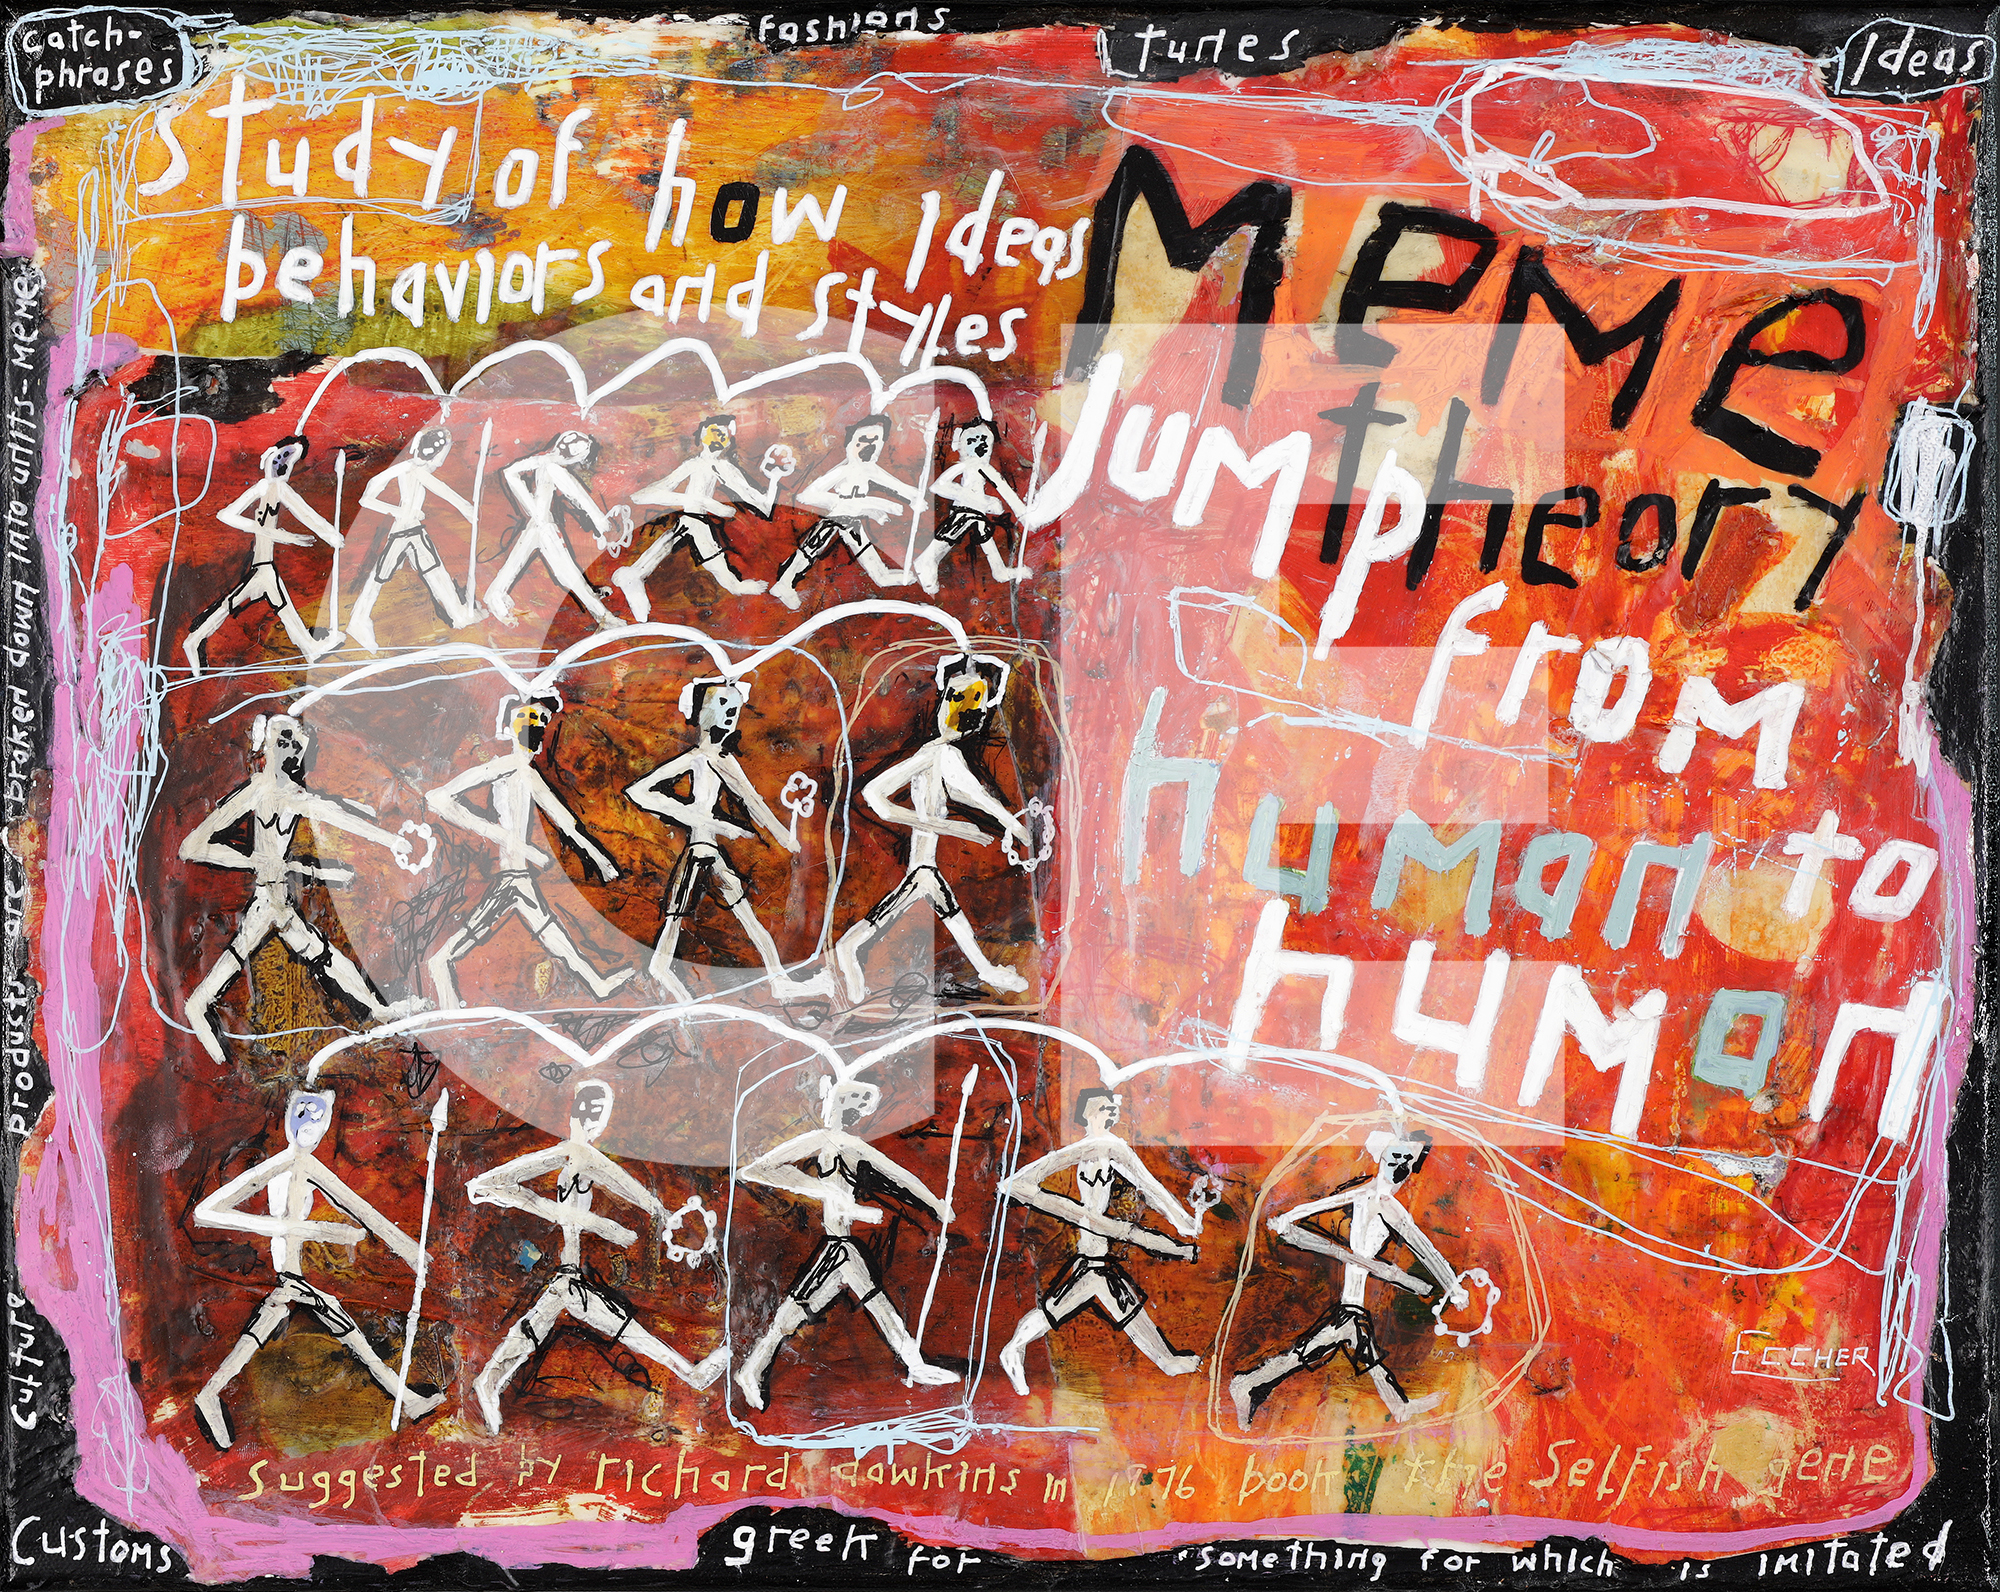 catch-
phrases
Fashions
tunes
Ideas
study of how Ideas
behaviors and styles
Meme
theory
Jump
from
human to
human
culture products are broken down into units-MEMES
ECCHER
suggested by richard dawkins in 1976 book the Selfish gene
Customs
greek for
something for which is imitated
GE